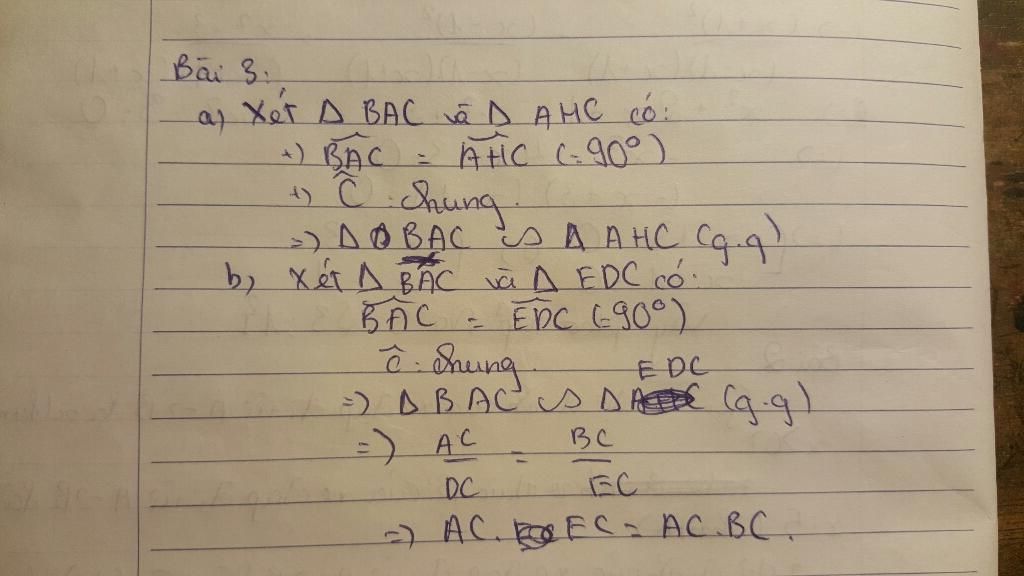 Bài 3:
a) Xét Δ BAC và Δ AHC có:
+) BAC = AHC (=90°)
+) Ĉ : chung.
=) Δ BAC ∽ Δ AHC (g.g)
b) Xét Δ BAC và Δ EDC có:
BAC = EDC (=90°)
Ĉ : chung.
=) Δ BAC ∽ Δ EDC (g.g)
=) AC/DC = BC/EC
=) AC. EC = AC.BC.